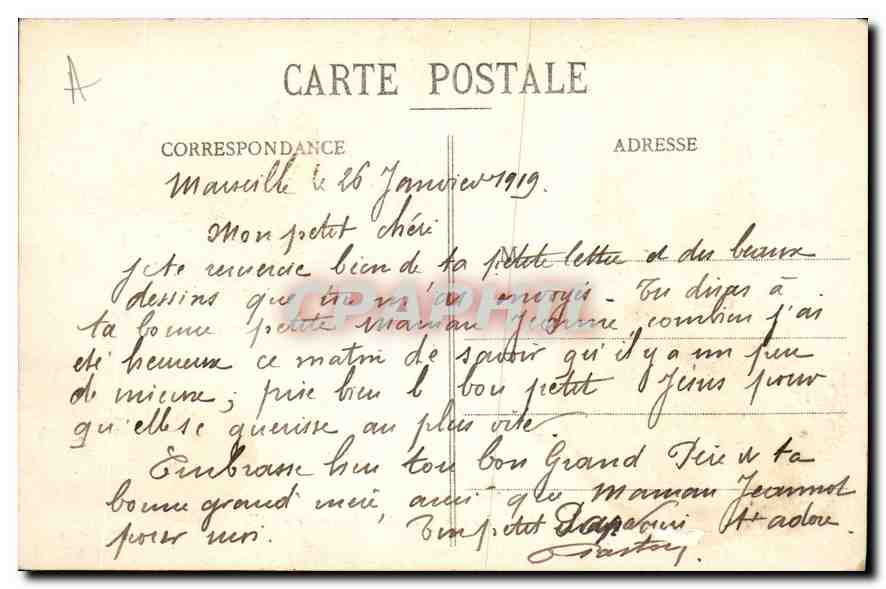 A
CARTE POSTALE
CORRESPONDANCE
ADRESSE
Marseille le 26 Janvier 1919.
Mon petit chéri
M
Je te remercie bien de ta petite lettre et des beaux
dessins que tu m'as envoyés. Tu diras à
ta bonne petite Maman Jeanne, combien j'ai
été heureux ce matin de savoir qu'il y a un peu
de mieux; prie bien le bon petit Jésus pour
qu'elle se guerisse au plus vite.
Embrasse bien ton bon Grand Père et ta
bonne grand mère, ainsi que Maman Jeannot
pour moi. Ton petit Papa qui t'adore
CPAPHIL